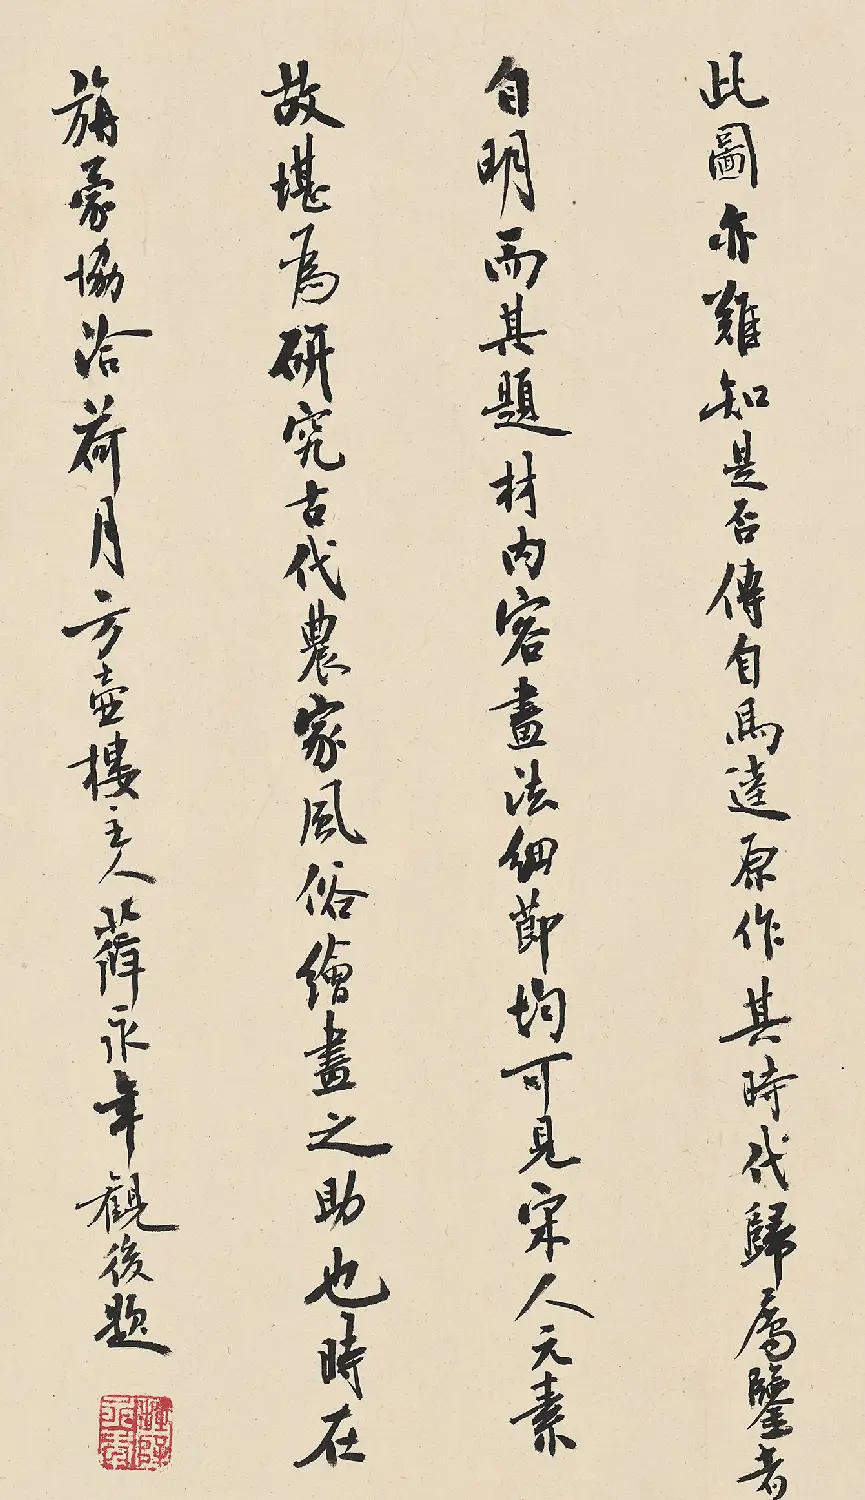 此圖亦難知是否傳自馬逵原作其時代歸屬鑒者
自明而其題材內容畫法細節均可見宋人元素
故堪為研究古代農家風俗繪畫之助也時在
旃蒙協洽荷月方壺樓主人薛永年觀後題